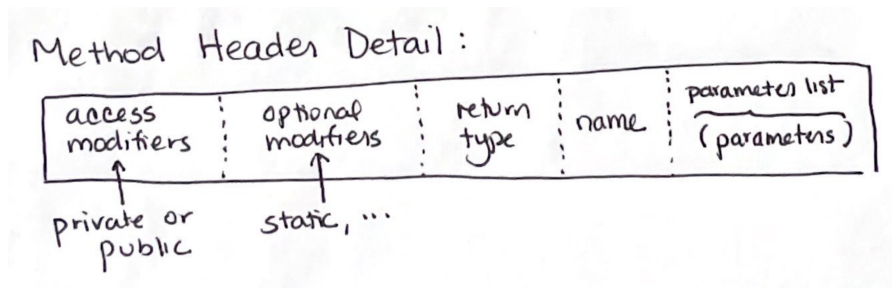 Method Header Detail:
access modifiers
optional modifiers
return type
name
parameter list
(parameters)
private or public
static, ...